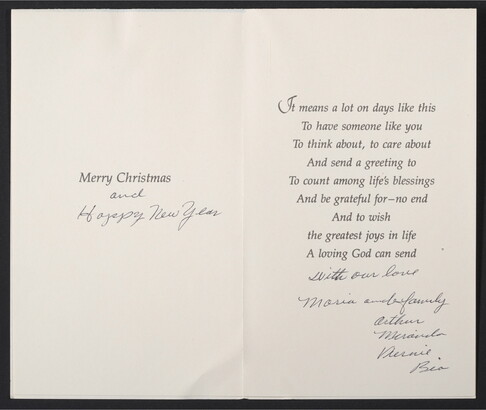 Merry Christmas
and
Happy New Year
It means a lot on days like this
To have someone like you
To think about, to care about
And send a greeting to
To count among life's blessings
And be grateful for—no end
And to wish
the greatest joys in life
A loving God can send
With our love
Maria and family
Arthur
Miranda
Bea